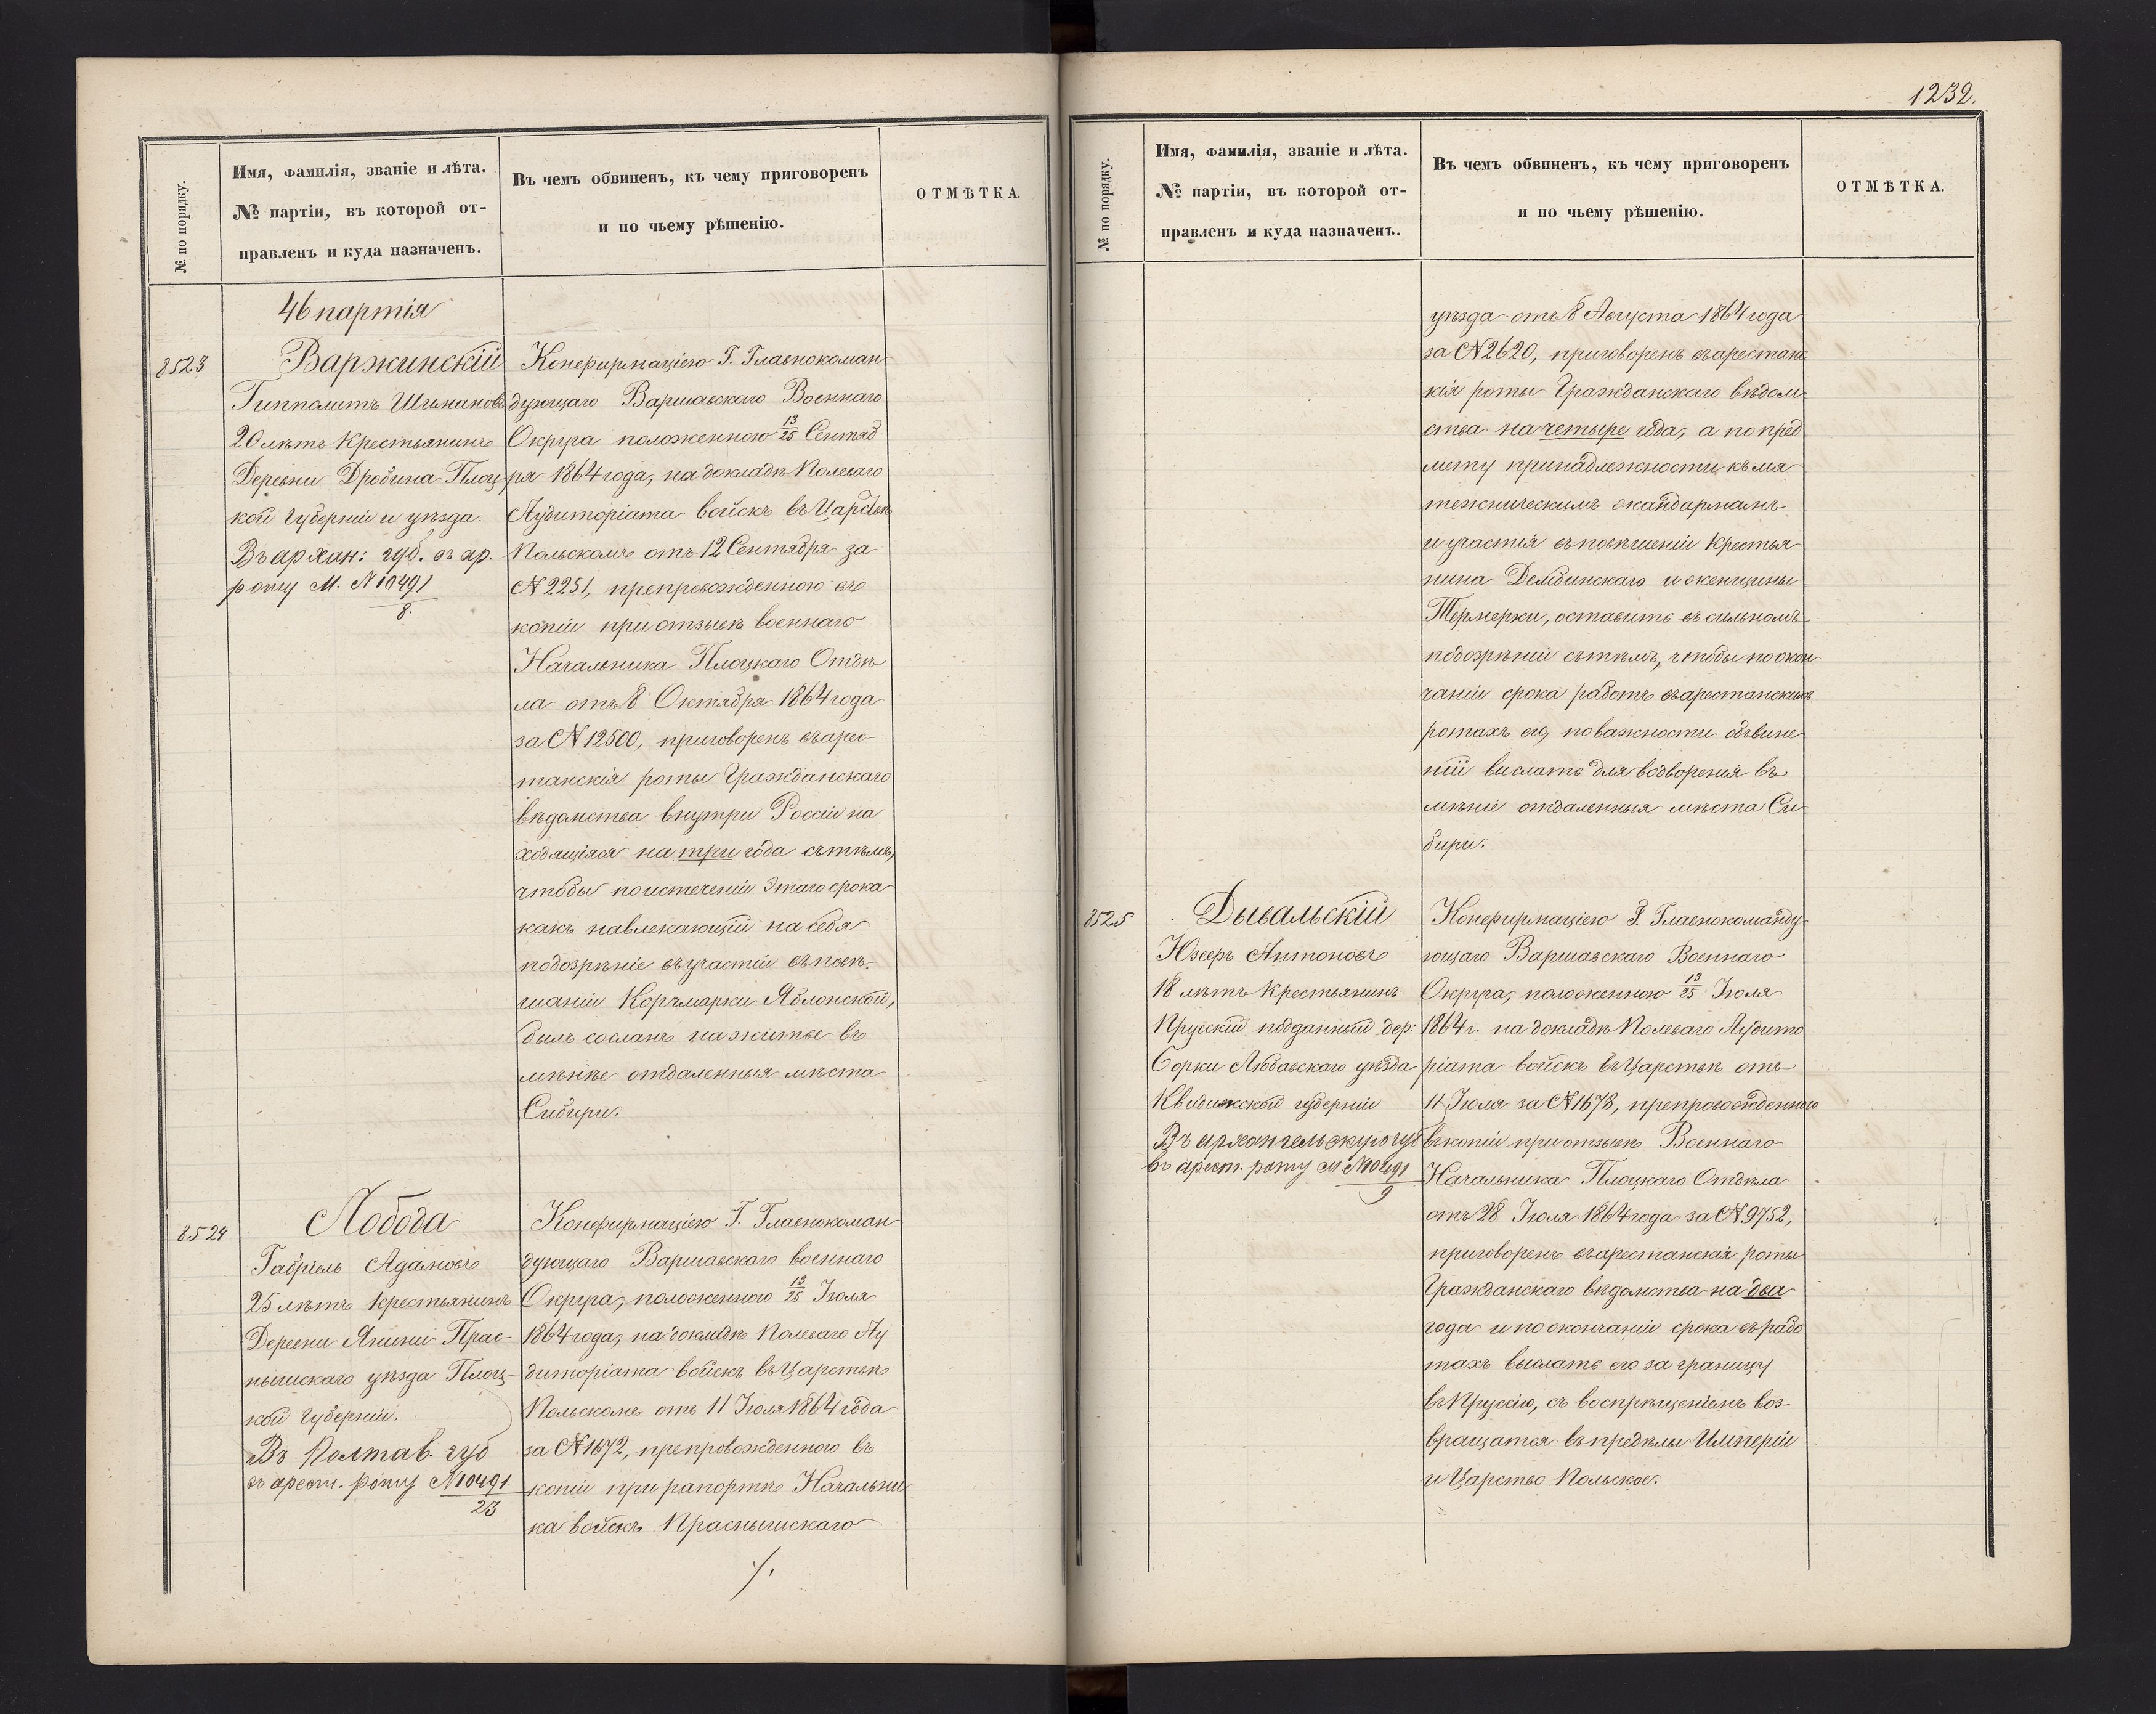 1232.
№ по порядку.
Имя, фамилія, званіе и лѣта.
№ партіи, въ которой от-
правленъ и куда назначенъ.
Въ чемъ обвиненъ, къ чему приговоренъ
и по чьему рѣшенію.
ОТМѢТКА.
46 партія
8523
Варжинскій
Гипполитъ
20 лѣтъ Крестьянинъ
Деревни Дробина Плоц
кой Губерніи и уѣзда.
Въ архан: губ. въ ар.
роту М. N 10491
8.
Конфирмаціею Г. Главнокоман
дующаго Варшавскаго Военнаго
Округа положенною 13/25 Сентяб
ря 1864 года, на докладѣ Полеваго
Аудиторіата войскъ въ Царствѣ
Польскомъ отъ 12 Сентября за
N 2251, препровожденною въ
копіи при отзывѣ военнаго
Начальника Плоцкаго Отдѣ
ла отъ 8 Октября 1864 года
за N 12500, приговоренъ въ арес-
танскія роты Гражданскаго
вѣдомства внутри Россіи на
ходящіяся на три года съ тѣмъ,
чтобы по истеченіи Этаго срока
какъ навлекающій на себя
подозрѣніе въ участіи въ повѣ-
шаніи Корчмарки Яблонской,
былъ сосланъ на житье въ
менѣе отдаленныя мѣста
Сибири.
8524
Лобода
Габріель Адамовъ
25 лѣтъ Крестьянинъ
Деревни Прас-
нышскаго уѣзда Плоц-
кой Губерніи.
Въ Полтав. губ
въ арест. роту N 10491
23
Конфирмаціею Г. Главнокоман
дующаго Варшавскаго военнаго
Округа, положенною 13/25 Іюля
1864 года, на докладѣ Полеваго Ау
диторіата войскъ въ Царствѣ
Польскомъ отъ 11 Іюля 1864 года
за N 1672, препровожденною въ
копіи при рапортѣ Начальни
ка войскъ Праснышскаго
/.
№ по порядку.
Имя, фамилія, званіе и лѣта.
№ партіи, въ которой от-
правленъ и куда назначенъ.
Въ чемъ обвиненъ, къ чему приговоренъ
и по чьему рѣшенію.
ОТМѢТКА.
уѣзда отъ 8 Августа 1864 года
за N 2620, приговоренъ въ арестанс
кія роты Гражданскаго вѣдом
ства на четыре года, а по пред
мету принадлежности къ мя
тежническимъ жандармамъ
и участія въ повѣшеніи Крестья
нина Дембинскаго и женщины
Термерки, оставить въ сильномъ
подозрѣніи съ тѣмъ, чтобы по окон
чаніи срока работъ въ арестанскихъ
ротахъ его, по важности обвине
ній выслать для водворенія въ
менѣе отдаленныя мѣста Си
бири.
8525
Дывальскій
Юзефъ Антоновъ
18 лѣтъ Крестьянинъ
Прусскій подданный дер:
Борки Любавскаго уѣзда
Квидижской губерніи
Въ архангельскую губ
въ арест. роту М N 10491
9
Конфирмаціею Г Главнокоманду
ющаго Варшавскаго Военнаго
Округа, положенною 13/25 Іюля
1864 г. на докладѣ Полеваго Аудито
ріата войскъ въ Царствѣ отъ
11 Іюля за N 1678, препровожденною
въ копіи при отзывѣ Военнаго
Начальника Плоцкаго Отдѣла
отъ 28 Іюля 1864 года за N 9752,
приговоренъ въ арестанскія роты
Гражданскаго вѣдомства на два
года и по окончаніи срока въ рабо
тахъ выслать его за границу
въ Пруссію, съ воспрѣщеніемъ воз-
вращатся въ предѣлы Имперіи
и Царство Польское.